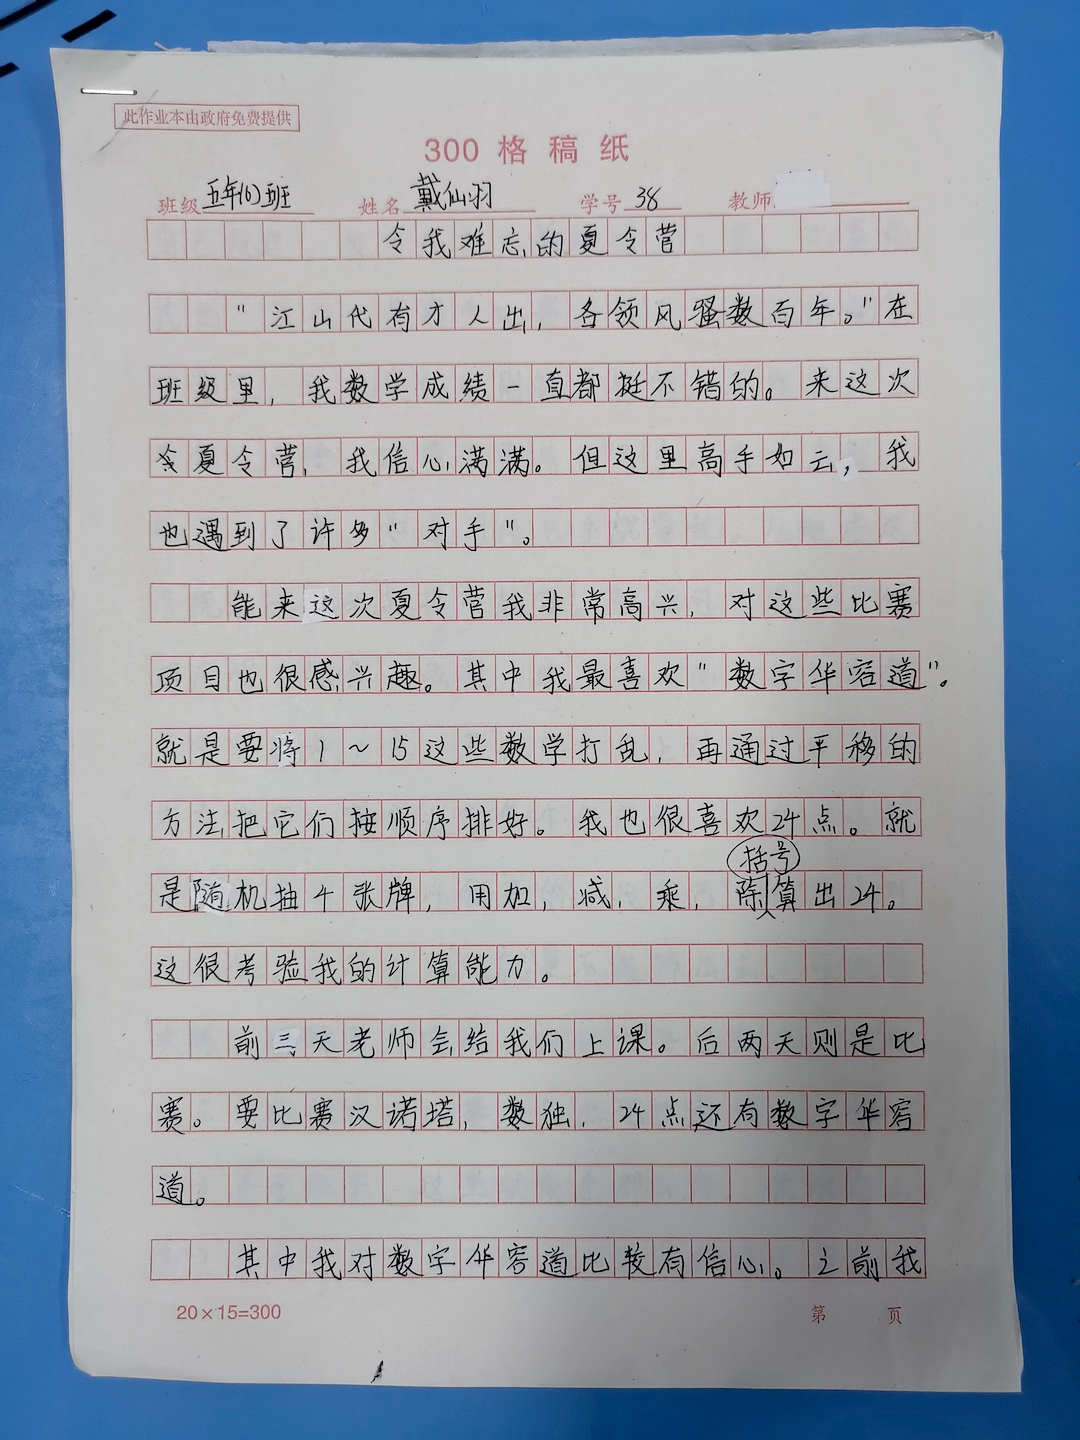 此作业本由政府免费提供
300 格稿纸
班级 五年(6)班 姓名 戴仙羽 学号 38 教师
令我难忘的夏令营
“江山代有才人出，各领风骚数百年。”在
班级里，我数学成绩一直都挺不错的。来这次
夏令营，我信心满满。但这里高手如云，我
也遇到了许多“对手”。
能来这次夏令营我非常高兴，对这些比赛
项目也很感兴趣。其中我最喜欢“数字华容道”。
就是要将1～15这些数学打乱，再通过平移的
方法把它们按顺序排好。我也很喜欢24点。就
括号
是随机抽4张牌，用加，减，乘，除算出24。
这很考验我的计算能力。
前三天老师会给我们上课。后两天则是比
赛。要比赛汉诺塔，数独，24点还有数字华容
道。
其中我对数字华容道比较有信心。之前我
20×15=300 第 页